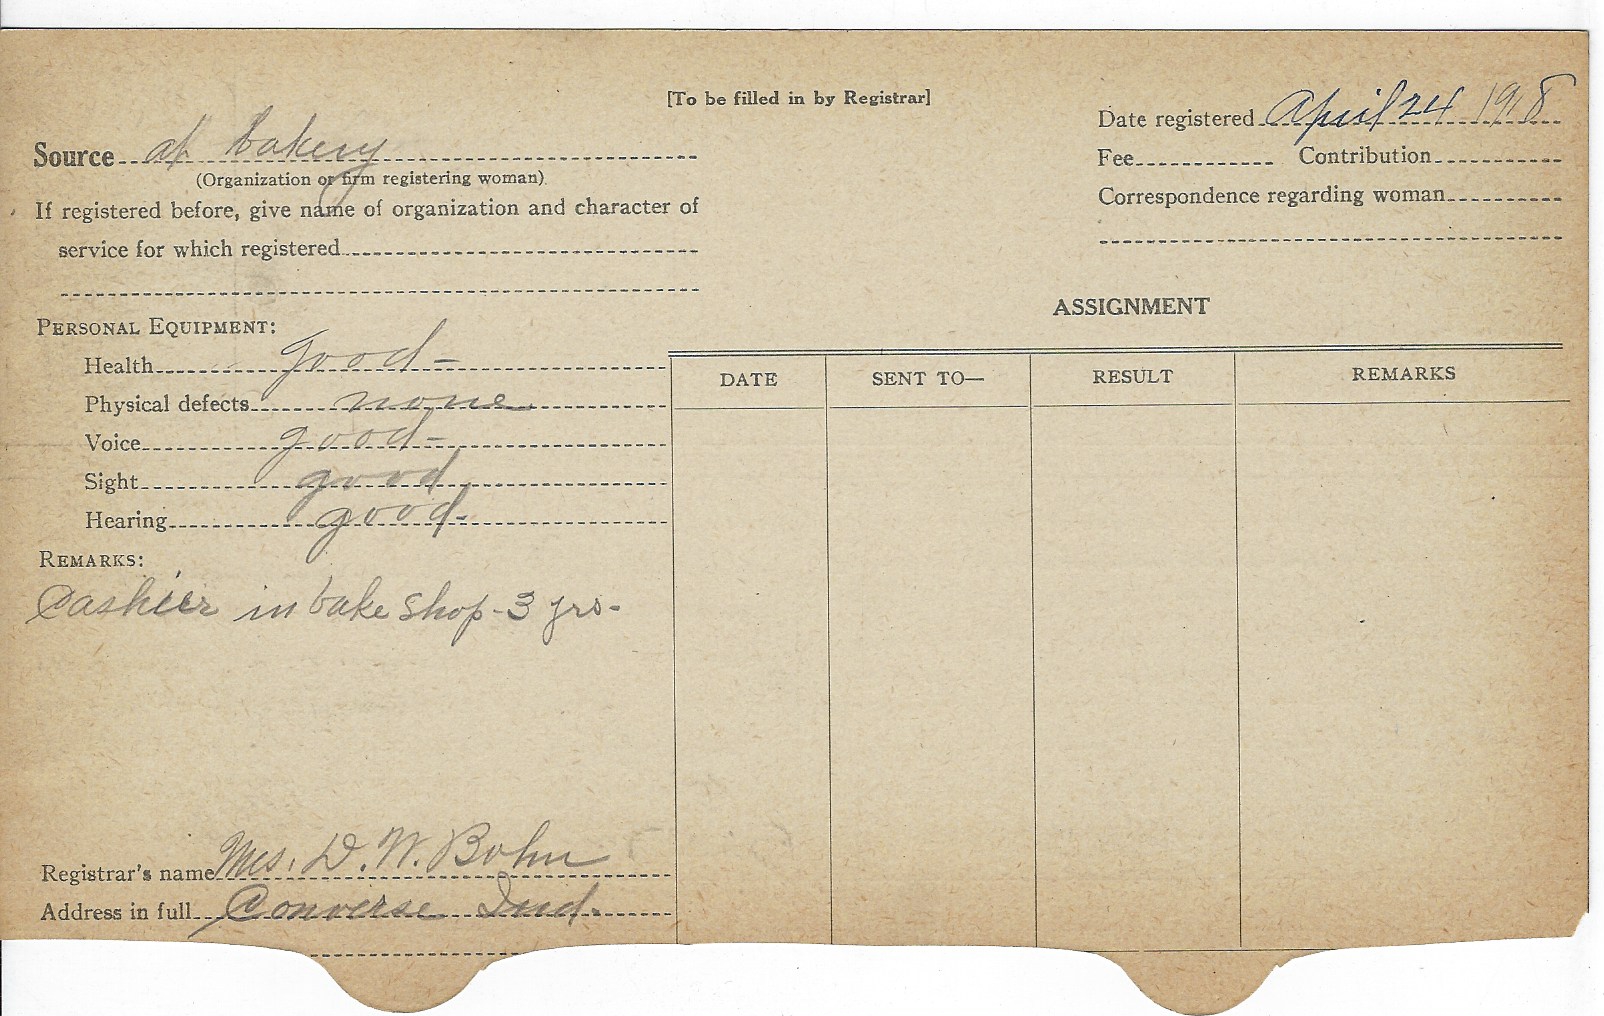 [To be filled in by Registrar]
Date registered April 24 1918
Source at bakery
Fee Contribution
(Organization or firm registering woman)
Correspondence regarding woman
If registered before, give name of organization and character of
service for which registered
ASSIGNMENT
PERSONAL EQUIPMENT:
Health good-
DATE SENT TO— RESULT REMARKS
Physical defects none
Voice good-
Sight good
Hearing good-
REMARKS:
Cashier in bake shop-3 yrs-
Registrar's name Mrs. D. W. Bohn
Address in full Converse Ind.